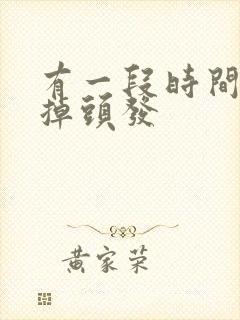 有一段時間
掉頭發
黄家荣